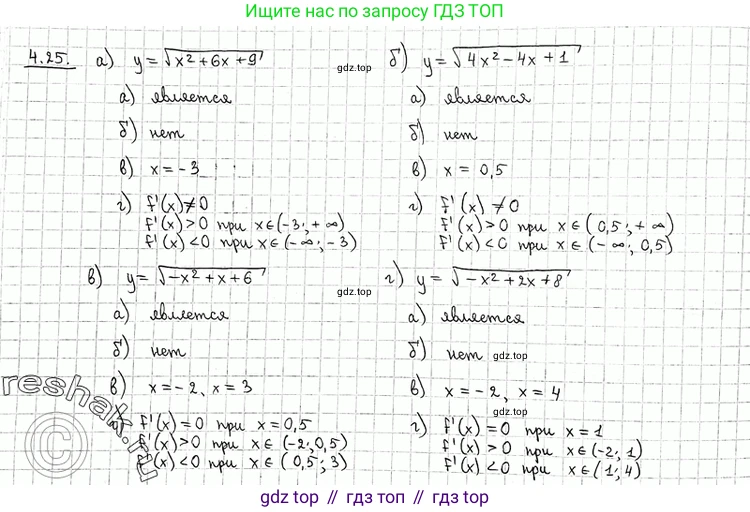 Ищите нас по запросу ГДЗ ТОП
4.25. а) y = √x² + 6x + 9
а) является
б) нет
в) x = -3
г) f'(x) ≠ 0
f'(x) > 0 при x∈(-3; +∞)
f'(x) < 0 при x∈(-∞; -3)
gdz.top
б) y = √4x² - 4x + 1
а) является
б) нет
в) x = 0,5
г) f'(x) ≠ 0
f'(x) > 0 при x∈(0,5; +∞)
f'(x) < 0 при x∈(-∞; 0,5)
gdz.top
в) y = √-x² + x + 6
а) является
б) нет
в) x = -2, x = 3
г) f'(x) = 0 при x = 0,5
f'(x) > 0 при x∈(-2; 0,5)
f'(x) < 0 при x∈(0,5; 3)
gdz.top
г) y = √-x² + 2x + 8
а) является
б) нет
gdz.top
в) x = -2, x = 4
gdz.top
г) f'(x) = 0 при x = 1
f'(x) > 0 при x∈(-2; 1)
f'(x) < 0 при x∈(1; 4)
reshak.ru
gdz top // гдз топ // gdz top